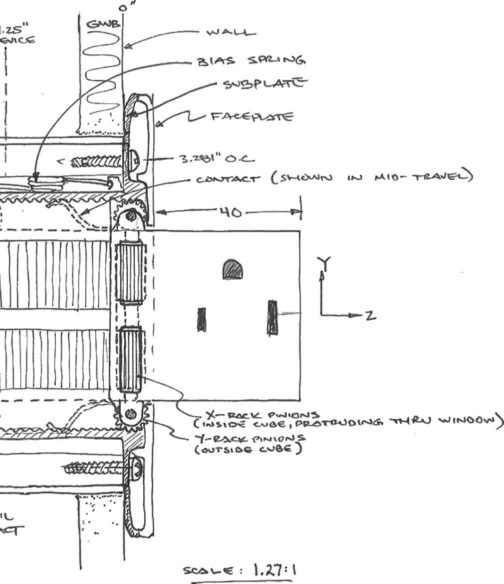 0"
1.25"
GWB
DEVICE
WALL
BIAS SPRING
SUBPLATE
FACEPLATE
3.281" O.C.
CONTACT (SHOWN IN MID-TRAVEL)
40
Y
Z
X-RACK PINIONS
(INSIDE CUBE, PROTRUDING THRU WINDOW)
Y-RACK PINIONS
(OUTSIDE CUBE)
SCALE: 1.27:1